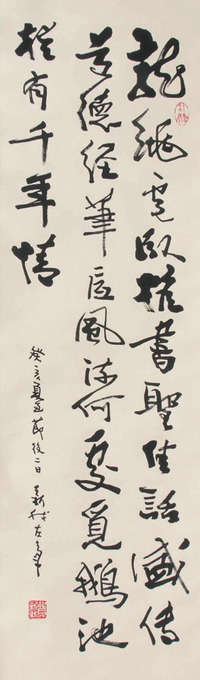 龍跳虎臥推書聖佳話盛传
道德經筆底風流何處覓鵝池
猶有千年情
癸亥夏至節後二日